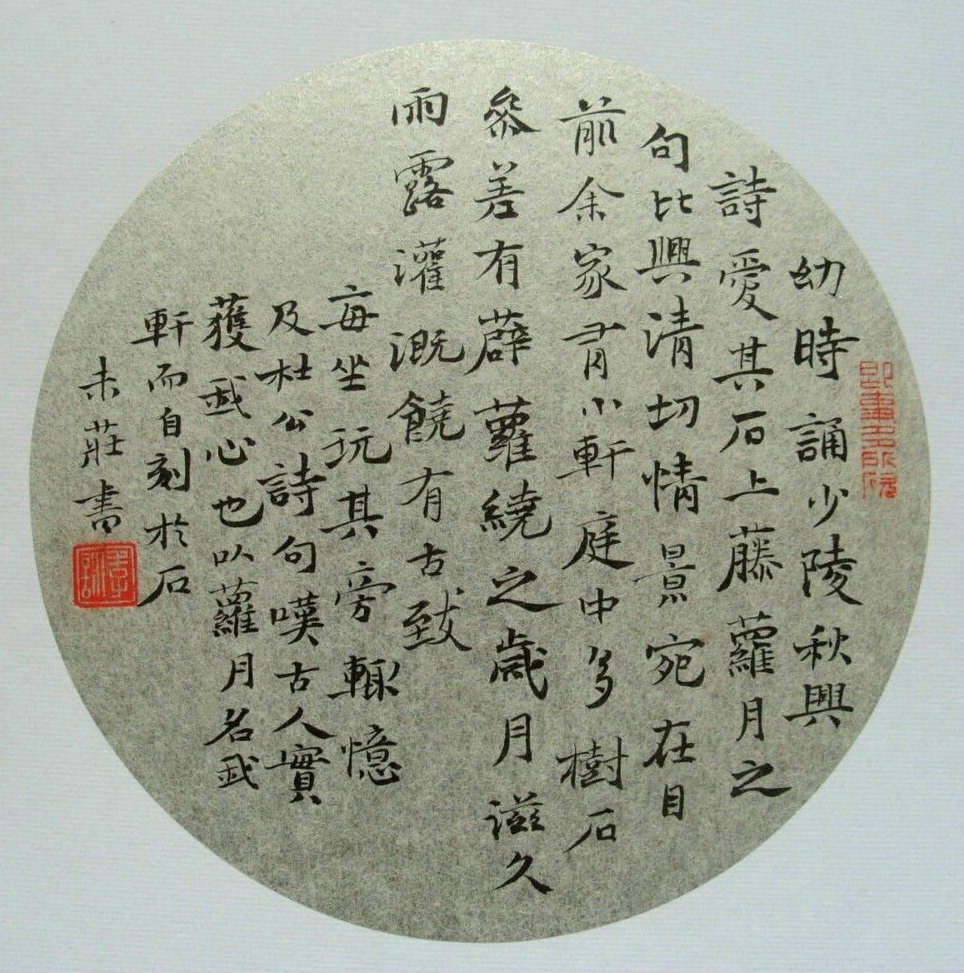 幼時誦少陵秋興
詩愛其石上藤蘿月之
句比興清切情景宛在目
前余家有小軒庭中多樹石
參差有薜蘿繞之歲月滋久
雨露灌溉饒有古致
每坐玩其旁輒憶
及杜公詩句嘆古人實
獲我心也以蘿月名我
軒而自刻於石
未莊書